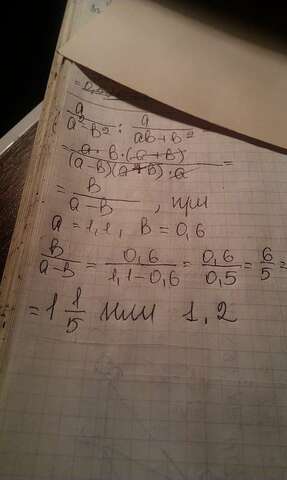 a/(a²-b²) : a/(ab+b²)
= a·b·(a+b)/((a-b)(a+b)·a) =
= b/(a-b), при
a=1,1, b=0,6
b/(a-b) = 0,6/(1,1-0,6) = 0,6/0,5 = 6/5 =
= 1 1/5 или 1,2